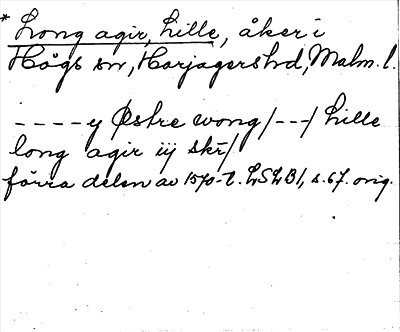 * Long agir, Lille, åker i
Högs sn, Harjagers hd, Malm. l.
- - - - y Østre wong /---/ Lille
long agir iij skr̃/
förra delen av 1570-t. LSLB1, s. 67. orig.